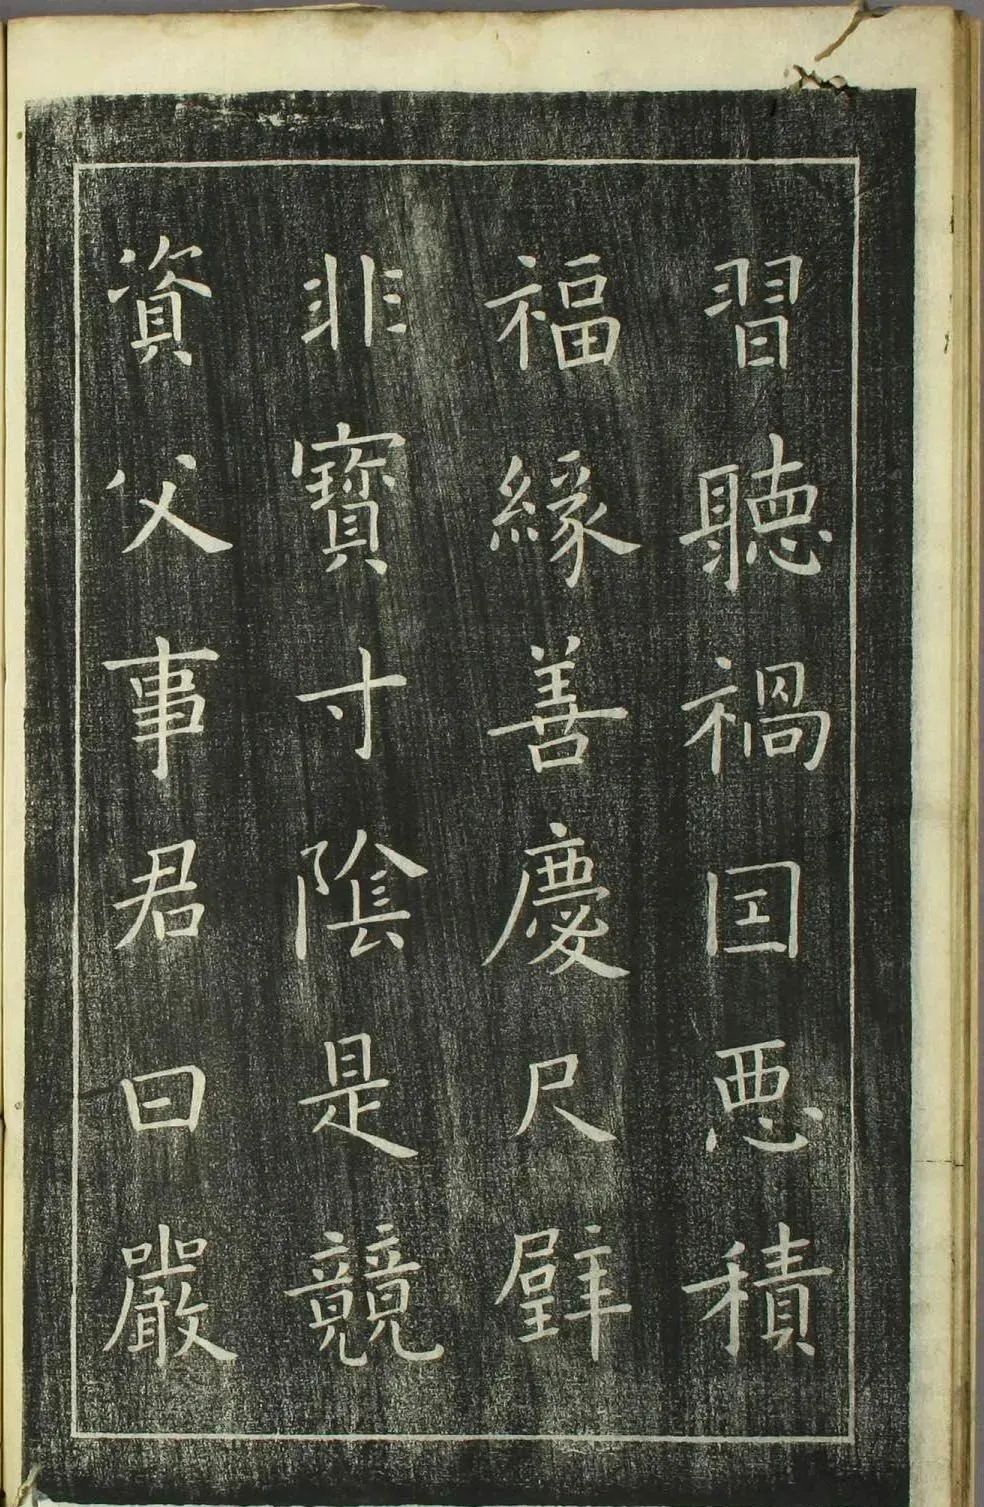 習聽禍因惡積
福緣善慶尺璧
非寶寸陰是競
資父事君曰嚴